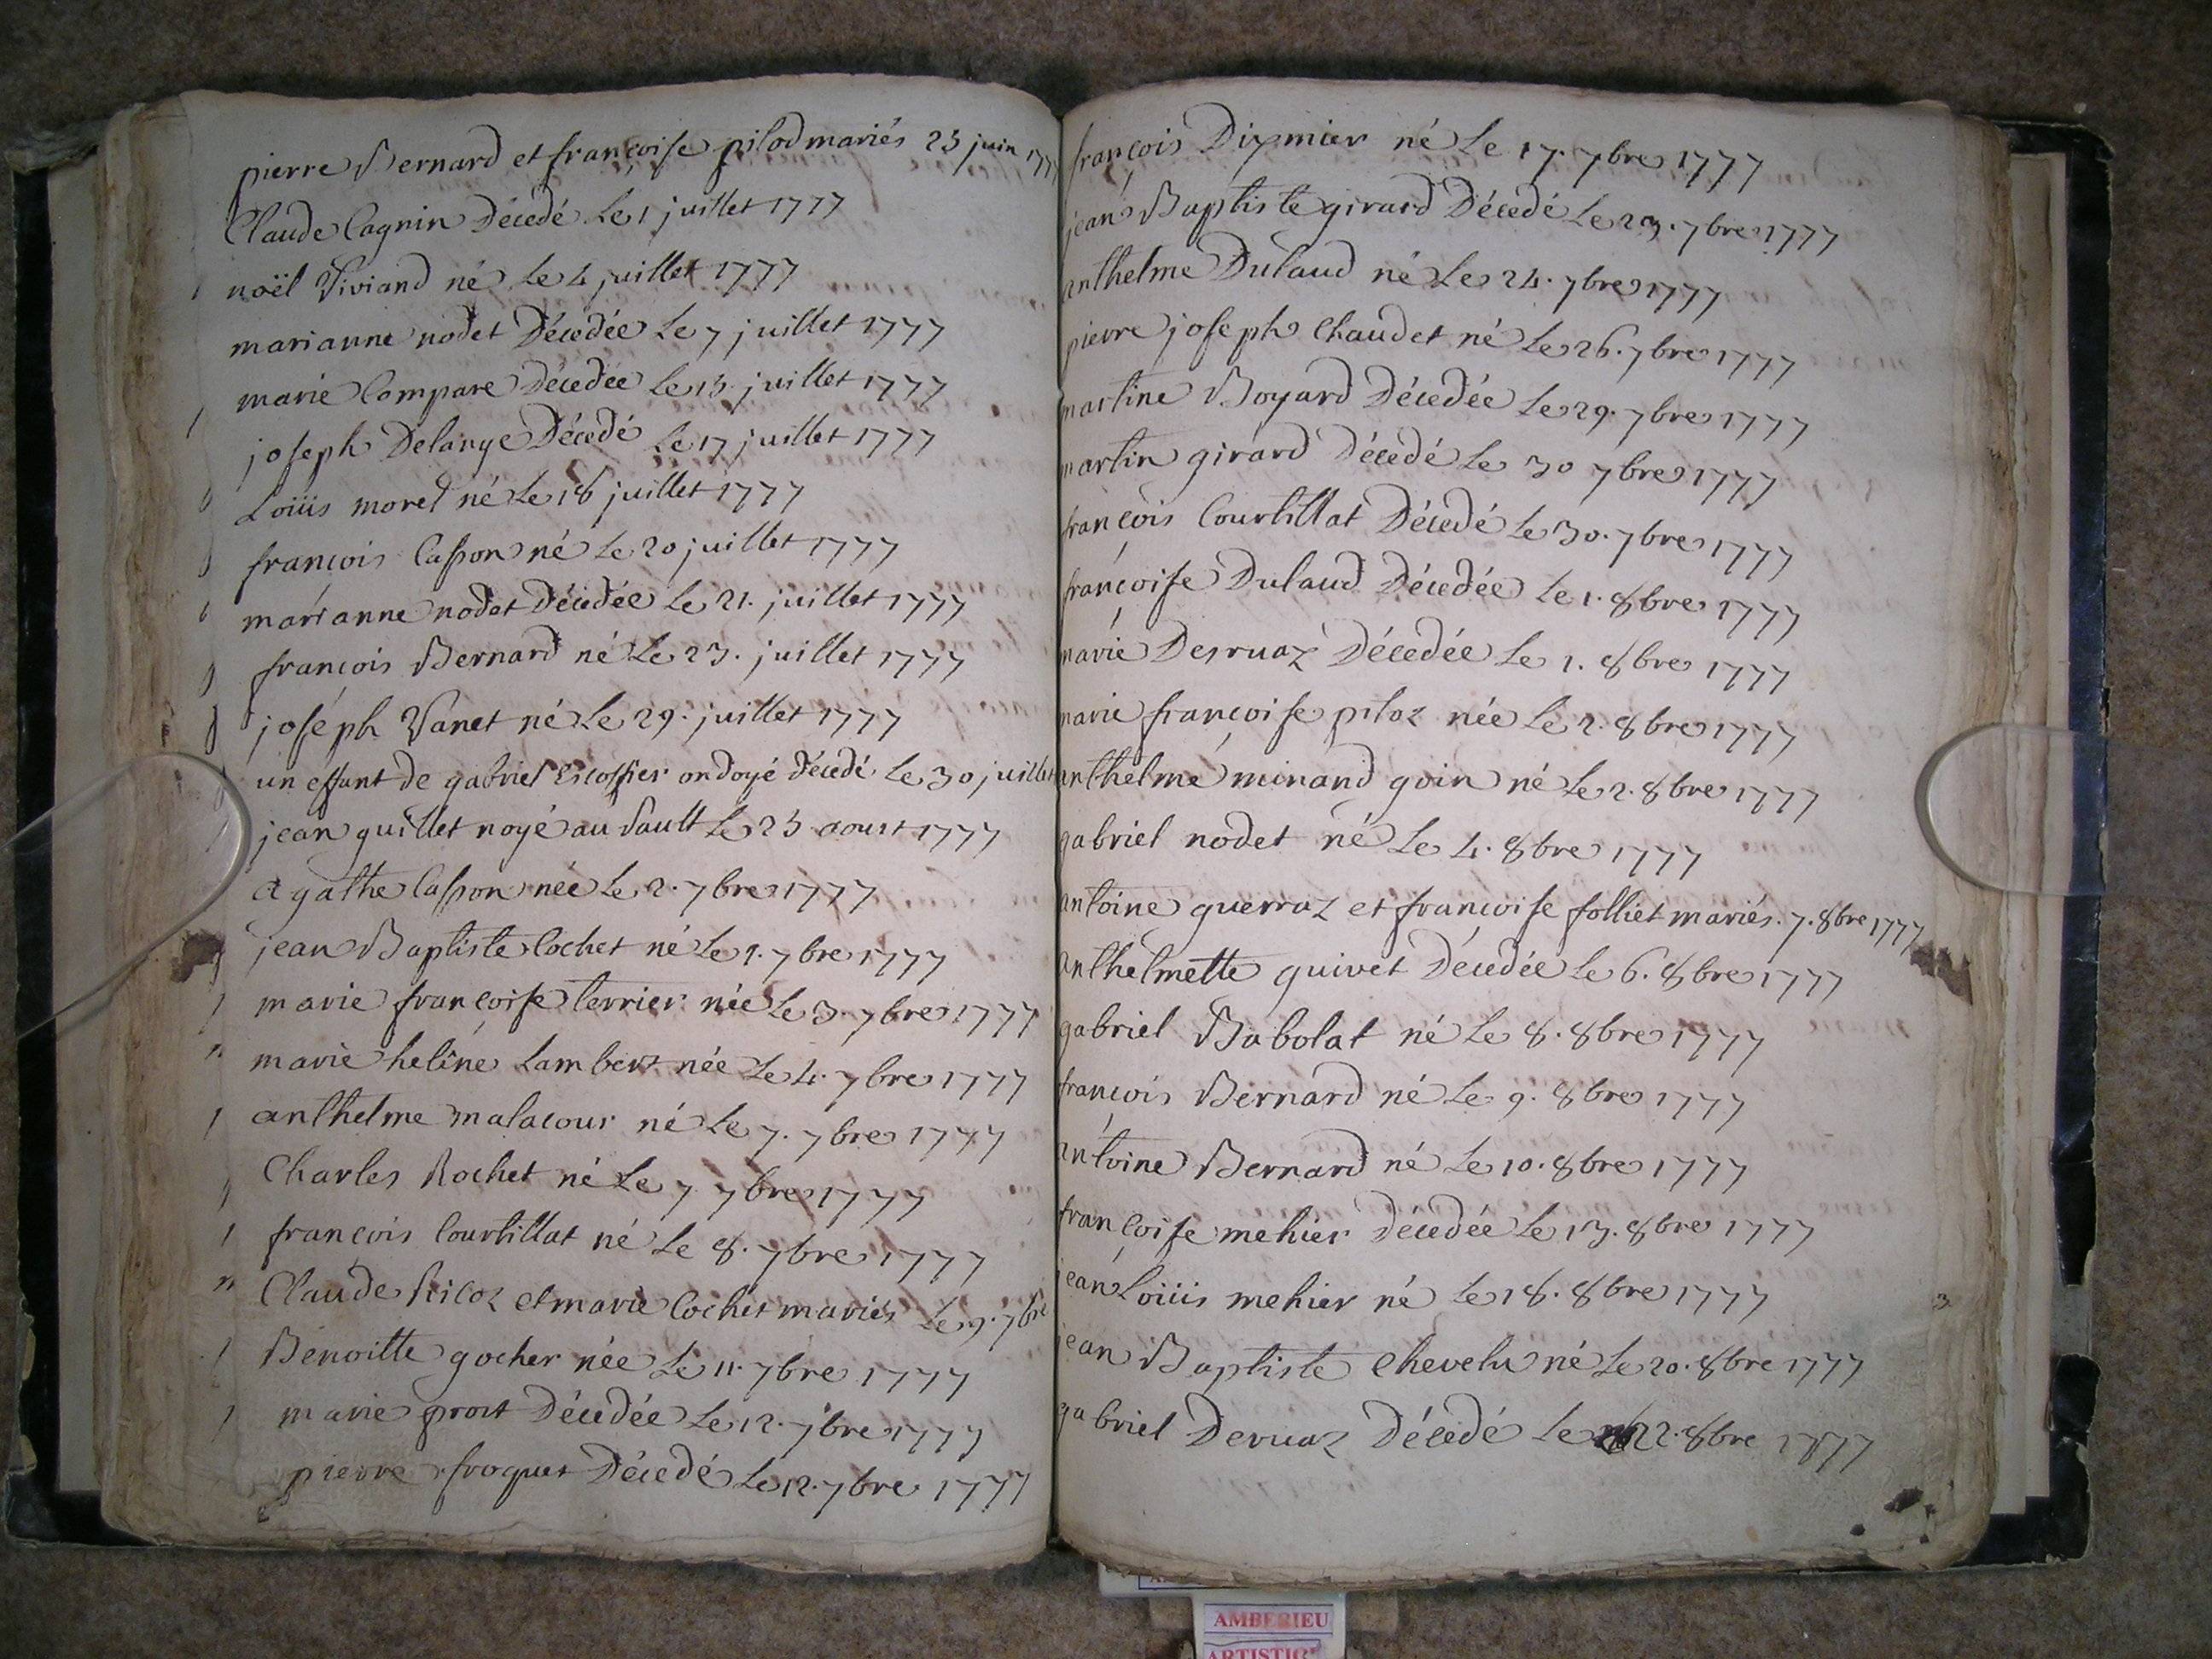 pierre Bernard et françoise pilod mariés 23 juin 1777
Claude Cagnin Décedé Le 1 juillet 1777
noël Viviand né Le 4 juillet 1777
marianne nodet Décedée Le 7 juillet 1777
marie Compare Décedée Le 13. juillet 1777
joseph Delange Décedé Le 17 juillet 1777
Loüis morel né Le 18 juillet 1777
françois Casson né Le 20 juillet 1777
marianne nodet Décedée Le 21. juillet 1777
françois Bernard né Le 23. juillet 1777
joseph Vanet né Le 29. juillet 1777
un effant de gabriel Escoffier ondoyé décedé Le 30 juillet
jean guillet noyé au Sault Le 23 aoust 1777
agathe Casson née Le 2. 7bre 1777
jean Baptiste Cochet né Le 1. 7bre 1777
marie françoise terrier née Le 3. 7bre 1777
marie helêne Lambert née Le 4. 7bre 1777
anthelme malacour né Le 7. 7bre 1777
Charles Rochet né Le 7 7bre 1777
françois Courtillat né Le 8. 7bre 1777
Claude et marie Cochet mariés Le 9. 7bre
Benoitte gocher née Le 11. 7bre 1777
marie prost Décedée Le 12. 7bre 1777
pierre froquet Décedé Le 12. 7bre 1777
françois Dixmier né Le 17. 7bre 1777
jean Baptiste girard Décedé Le 23. 7bre 1777
anthelme Dulaud né Le 24. 7bre 1777
pierre joseph Chaudet né Le 26. 7bre 1777
martine Boyard Décedée Le 29. 7bre 1777
martin girard Décedé Le 30 7bre 1777
françois Courtillat Décedé Le 30. 7bre 1777
françoise Dulaud Décedée Le 1. 8bre 1777
marie Desruaz Décedée Le 1. 8bre 1777
marie françoise piloz née Le 2. 8bre 1777
anthelme minand goin né Le 2. 8bre 1777
gabriel nodet né Le 4. 8bre 1777
antoine guerraz et françoise folliet mariés. 7. 8bre 1777
anthelmette quivet Décedée Le 6. 8bre 1777
gabriel Babolat né Le 8. 8bre 1777
françois Bernard né Le 9. 8bre 1777
antoine Bernard né Le 10. 8bre 1777
françoise mehier Décedée Le 13. 8bre 1777
jean Loüis mehier né Le 18. 8bre 1777
jean Baptiste Chevelu né Le 20. 8bre 1777
gabriel Deruaz Décedé Le 22. 8bre 1777
AMBERIEU